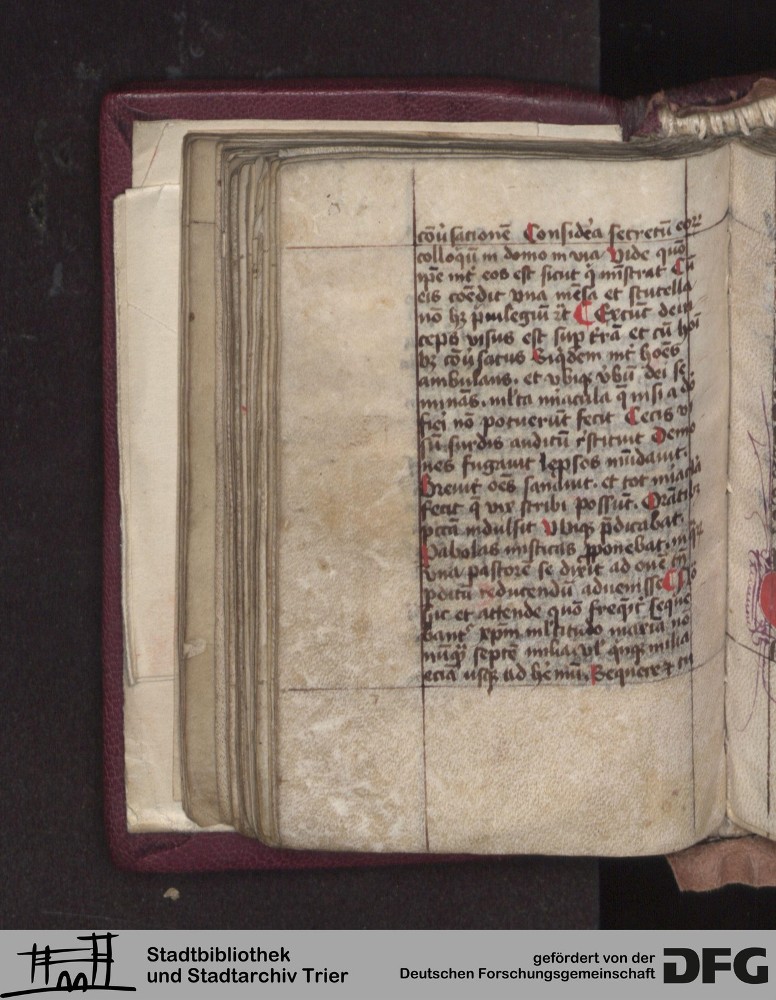 cōūsacionē Considēa secretū eoꝝ
colloqū in domo in via Vide quō
ip̄e int̄ eos est sicut q̄ mīstrat Cū
eis coēdit vna mēsa et scutella
nō hꝫ p̄uilegiū Exeūt dein
ceps visus est sup t̄rā et cū hoī
bꝫ cōūsatus Siqdem int̄ hoēs
ambulans. et vbiqꝫ v̄bū dei se
minās. ml̄ta mīacula q̄ nisi a dō
fiei nō potuerūt fecit Cecis vi
sū surdis auditū r̄stituit Demo
nes fugauit leprsos mūdauit.
Breuit̄ oēs sanauit. et tot mīacla
fecit q̄ vix scribi possūt.
pctā indulsit Vbiqꝫ p̄dicabat.
Pabolas misticas ꝓponebat.
vna pastorē se dixit ad ouē
ꝑditū reducendū aduenisse
Hic et attende quō freq̄t̄ seque
bant᷑ xp̄m ml̄titudo maxīa nō
nūqꝫ septē milia. vl̓ qnqꝫ milia
eciā usqꝫ ad hec Sequere et tu
Stadtbibliothek
und Stadtarchiv Trier
gefördert von der
Deutschen Forschungsgemeinschaft
DFG